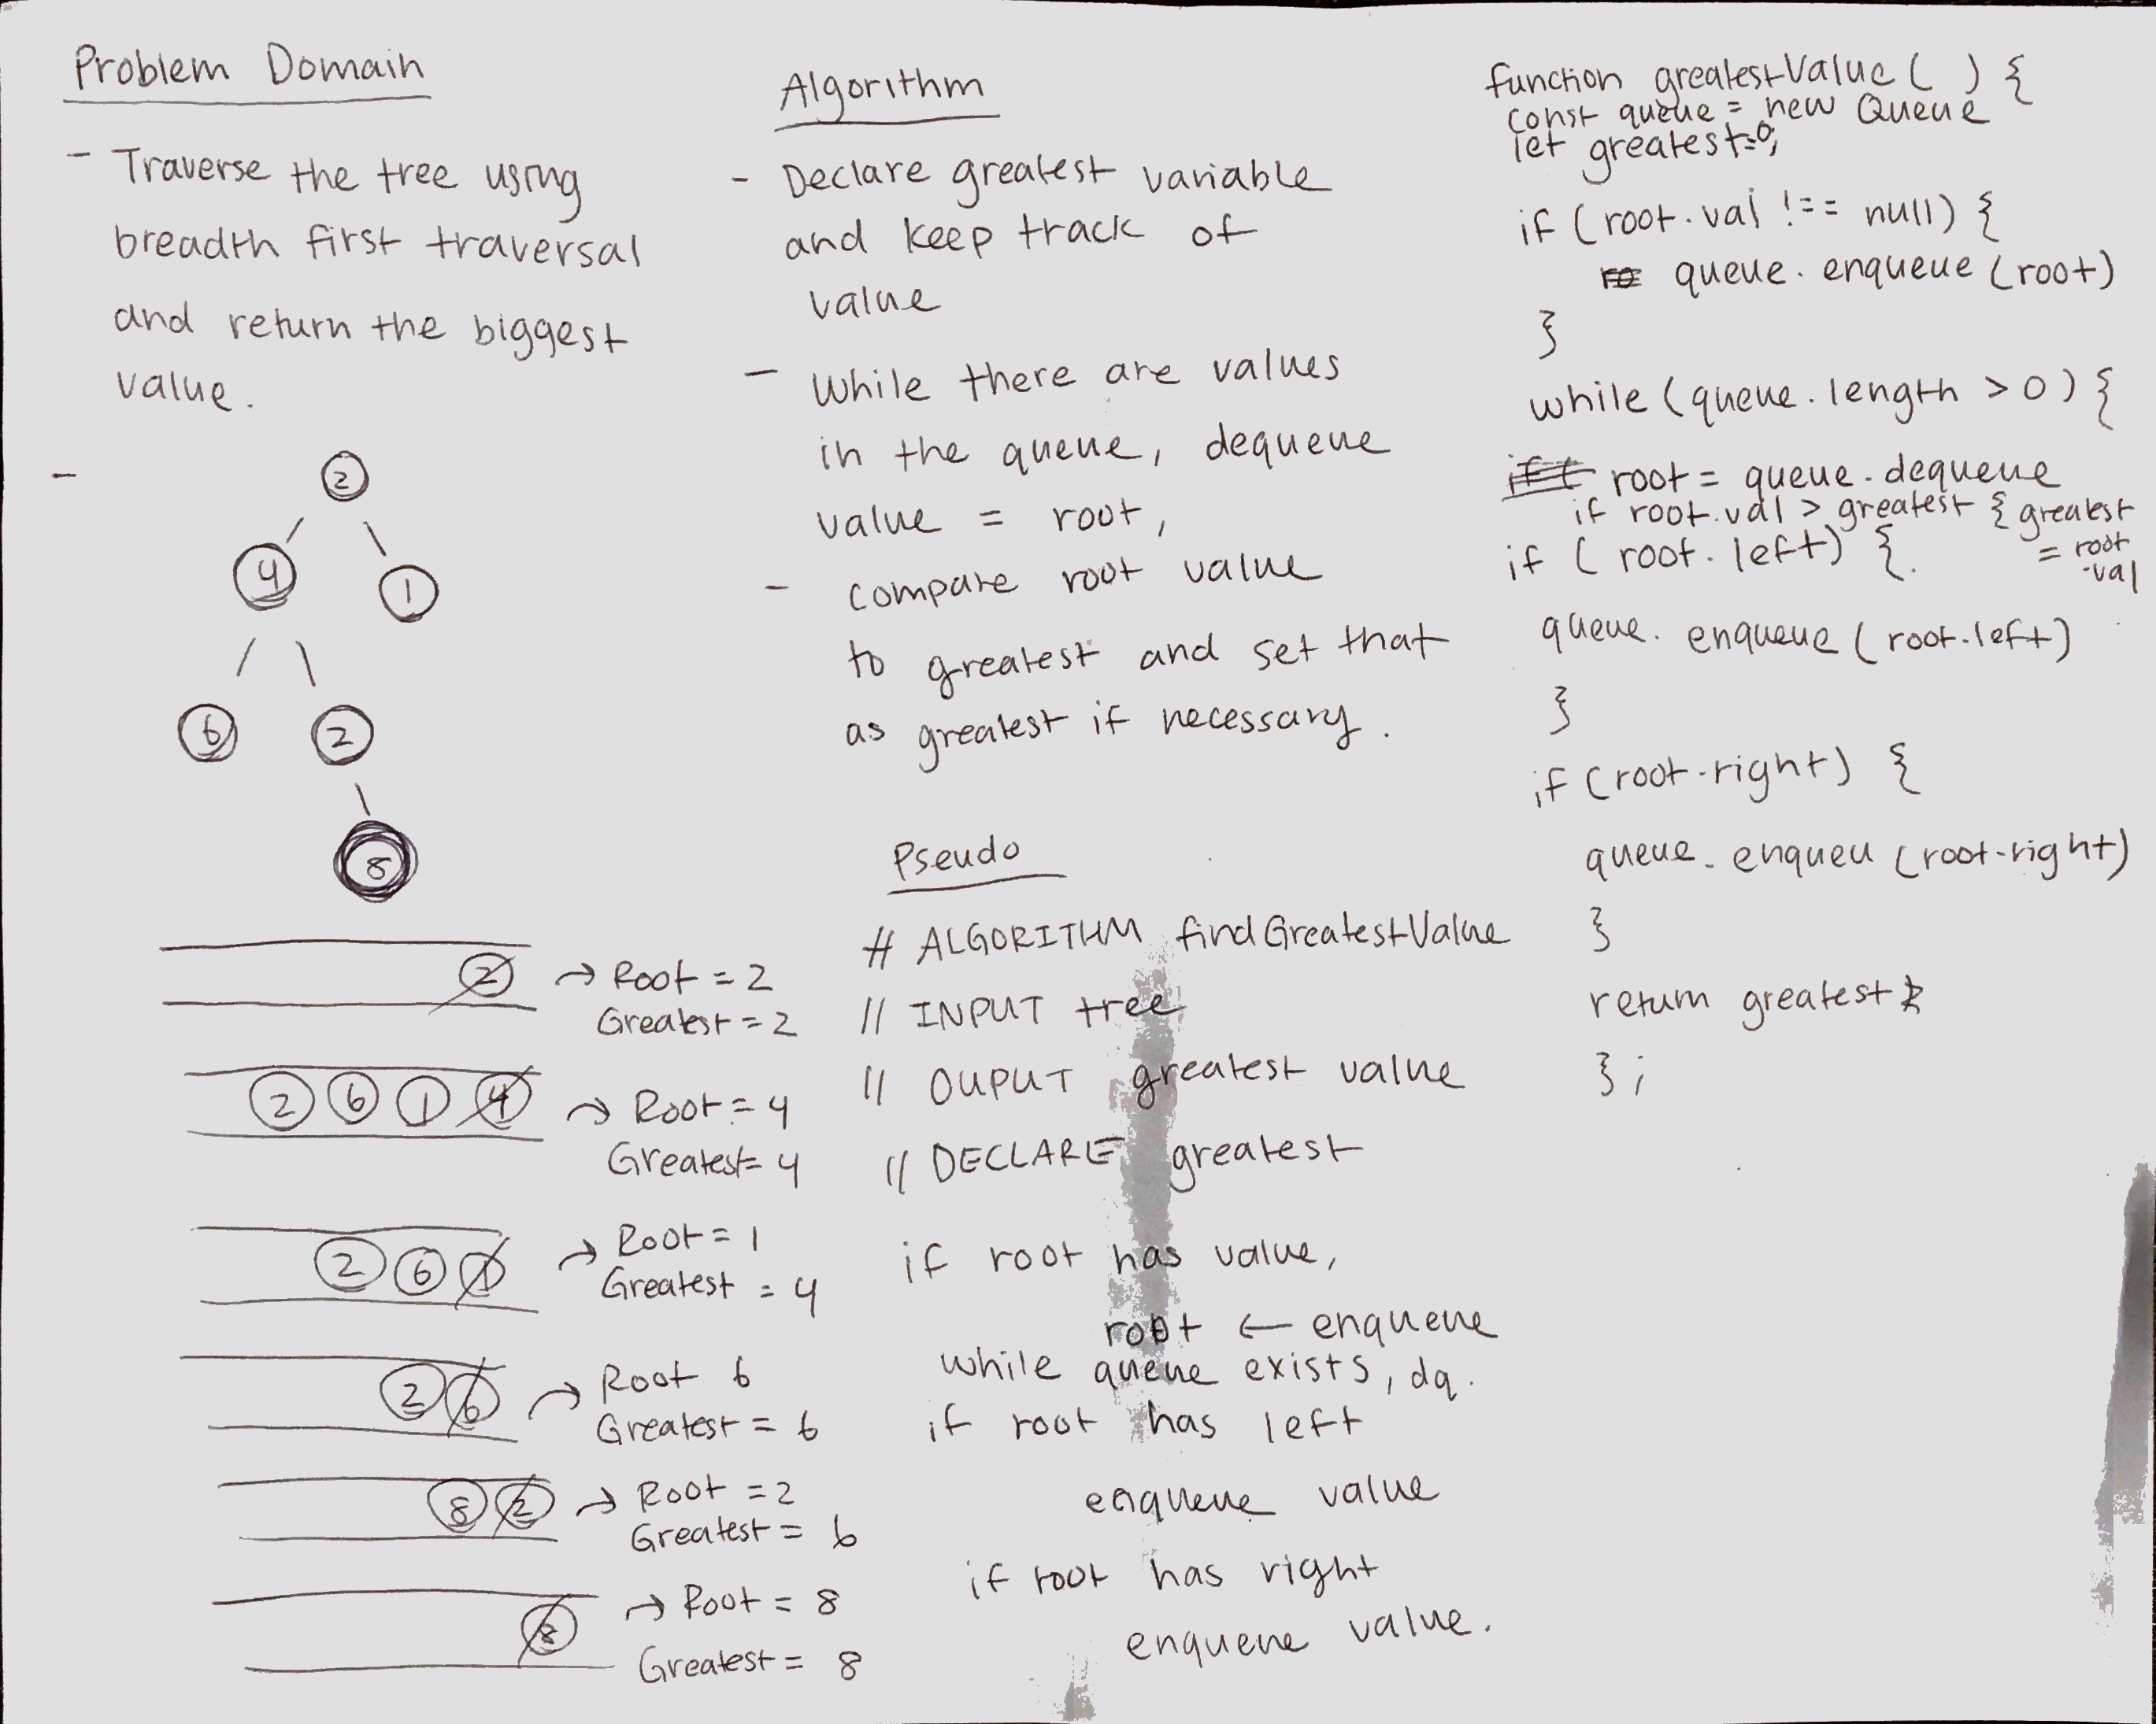 Problem Domain
- Traverse the tree using
breadth first traversal
and return the biggest
value.
-
2
4 1
6 2
8
2 → Root = 2
Greatest = 2
2 6 1 4 → Root = 4
Greatest = 4
2 6 1 → Root = 1
Greatest = 4
2 6 → Root 6
Greatest = 6
8 2 → Root = 2
Greatest = 6
8 → Root = 8
Greatest = 8
Algorithm
- Declare greatest variable
and keep track of
value
- While there are values
in the queue, dequeue
value = root,
- compare root value
to greatest and set that
as greatest if necessary.
Pseudo
# ALGORITHM findGreatestValue
// INPUT tree
// OUPUT greatest value
// DECLARE greatest
if root has value,
root ← enqueue
while queue exists, dq.
if root has left
enqueue value
if root has right
enqueue value.
function greatestValue ( ) {
const queue = new Queue
let greatest=0;
if (root.val !== null) {
queue.enqueue (root)
}
while (queue.length > 0) {
root = queue.dequeue
if root.val > greatest { greatest
= root
.val
if (root.left) {
queue.enqueue (root.left)
}
if (root.right) {
queue.enqueu (root.right)
}
return greatest
};